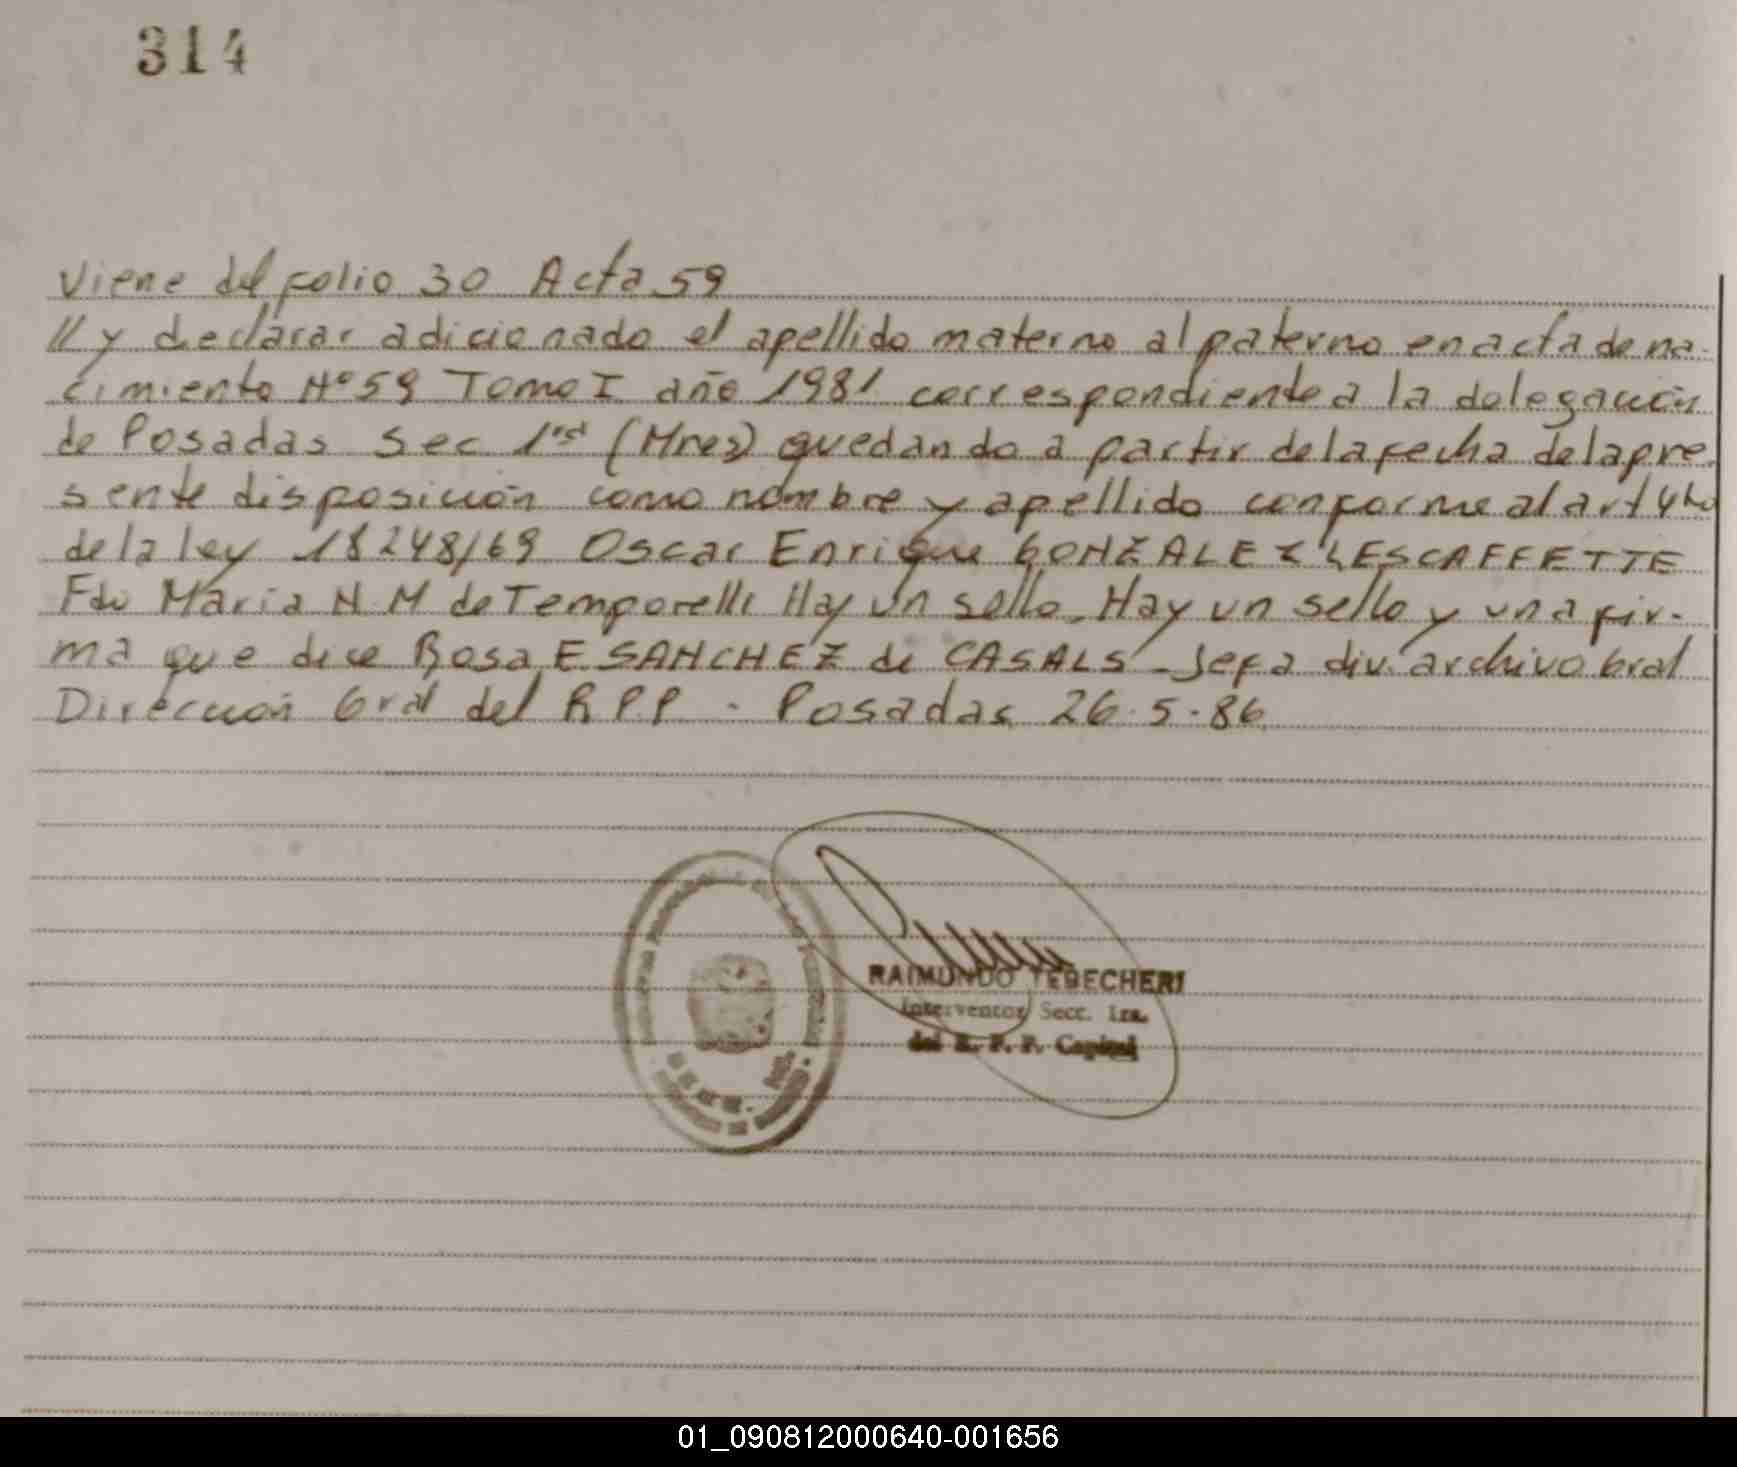 314
Viene del folio 30 Acta 59
// y declarar adicionado el apellido materno al paterno en acta de na-
cimiento Nº 59 Tomo I año 1981 correspondiente a la delegación
de Posadas Sec 1ra (Mnes) quedando a partir de la fecha de la pre
sente disposición como nombre y apellido conforme al art 4to
de la ley 18248/69 Oscar Enrique GONZALEZ LESCAFFETTE
Fdo Maria N M de Temporelli Hay un sello. Hay un sello y una fir-
ma que dice Rosa E SANCHEZ de CASALS - Jefa div. archivo Gral
Dirección Gral del R.P.P. - Posadas 26.5.86
RAIMUNDO TEBECHERI
Interventor Secc. 1ra.
del R. P. P. Capital
01_090812000640-001656